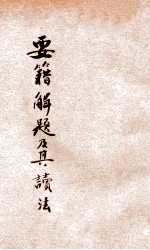 要籍解題及其讀法